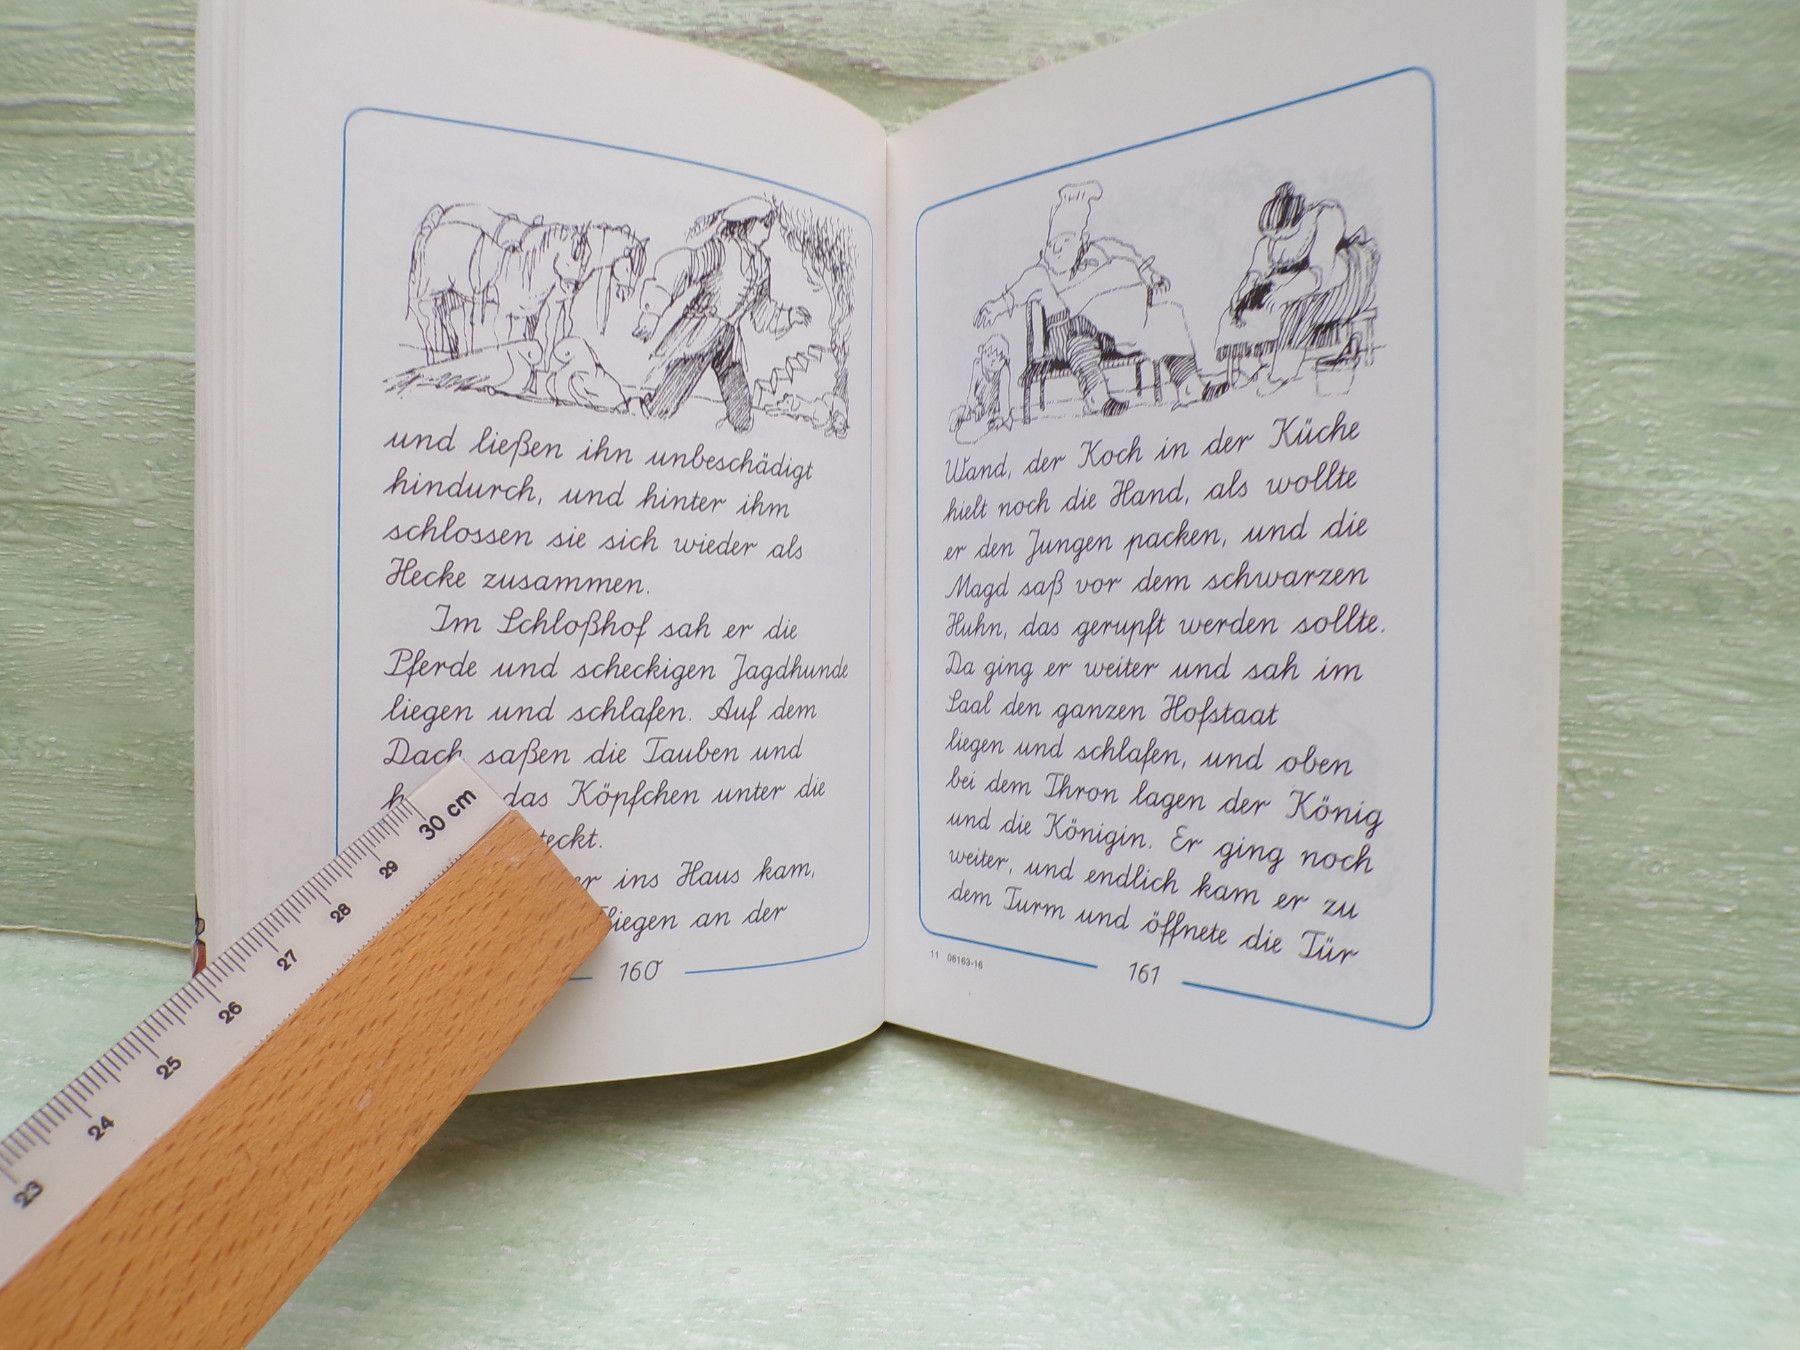 und ließen ihn unbeschädigt
hindurch, und hinter ihm
schlossen sie sich wieder als
Hecke zusammen.
Im Schloßhof sah er die
Pferde und scheckigen Jagdhunde
liegen und schlafen. Auf dem
Dach saßen die Tauben und
das Köpfchen unter die
teckt.
er ins Haus kam,
Fliegen an der
160
Wand, der Koch in der Küche
hielt noch die Hand, als wollte
er den Jungen packen, und die
Magd saß vor dem schwarzen
Huhn, das gerupft werden sollte.
Da ging er weiter und sah im
Saal den ganzen Hofstaat
liegen und schlafen, und oben
bei dem Thron lagen der König
und die Königin. Er ging noch
weiter, und endlich kam er zu
dem Turm und öffnete die Tür
11 08163-16
161
23 24 25 26 27 28 29 30 cm